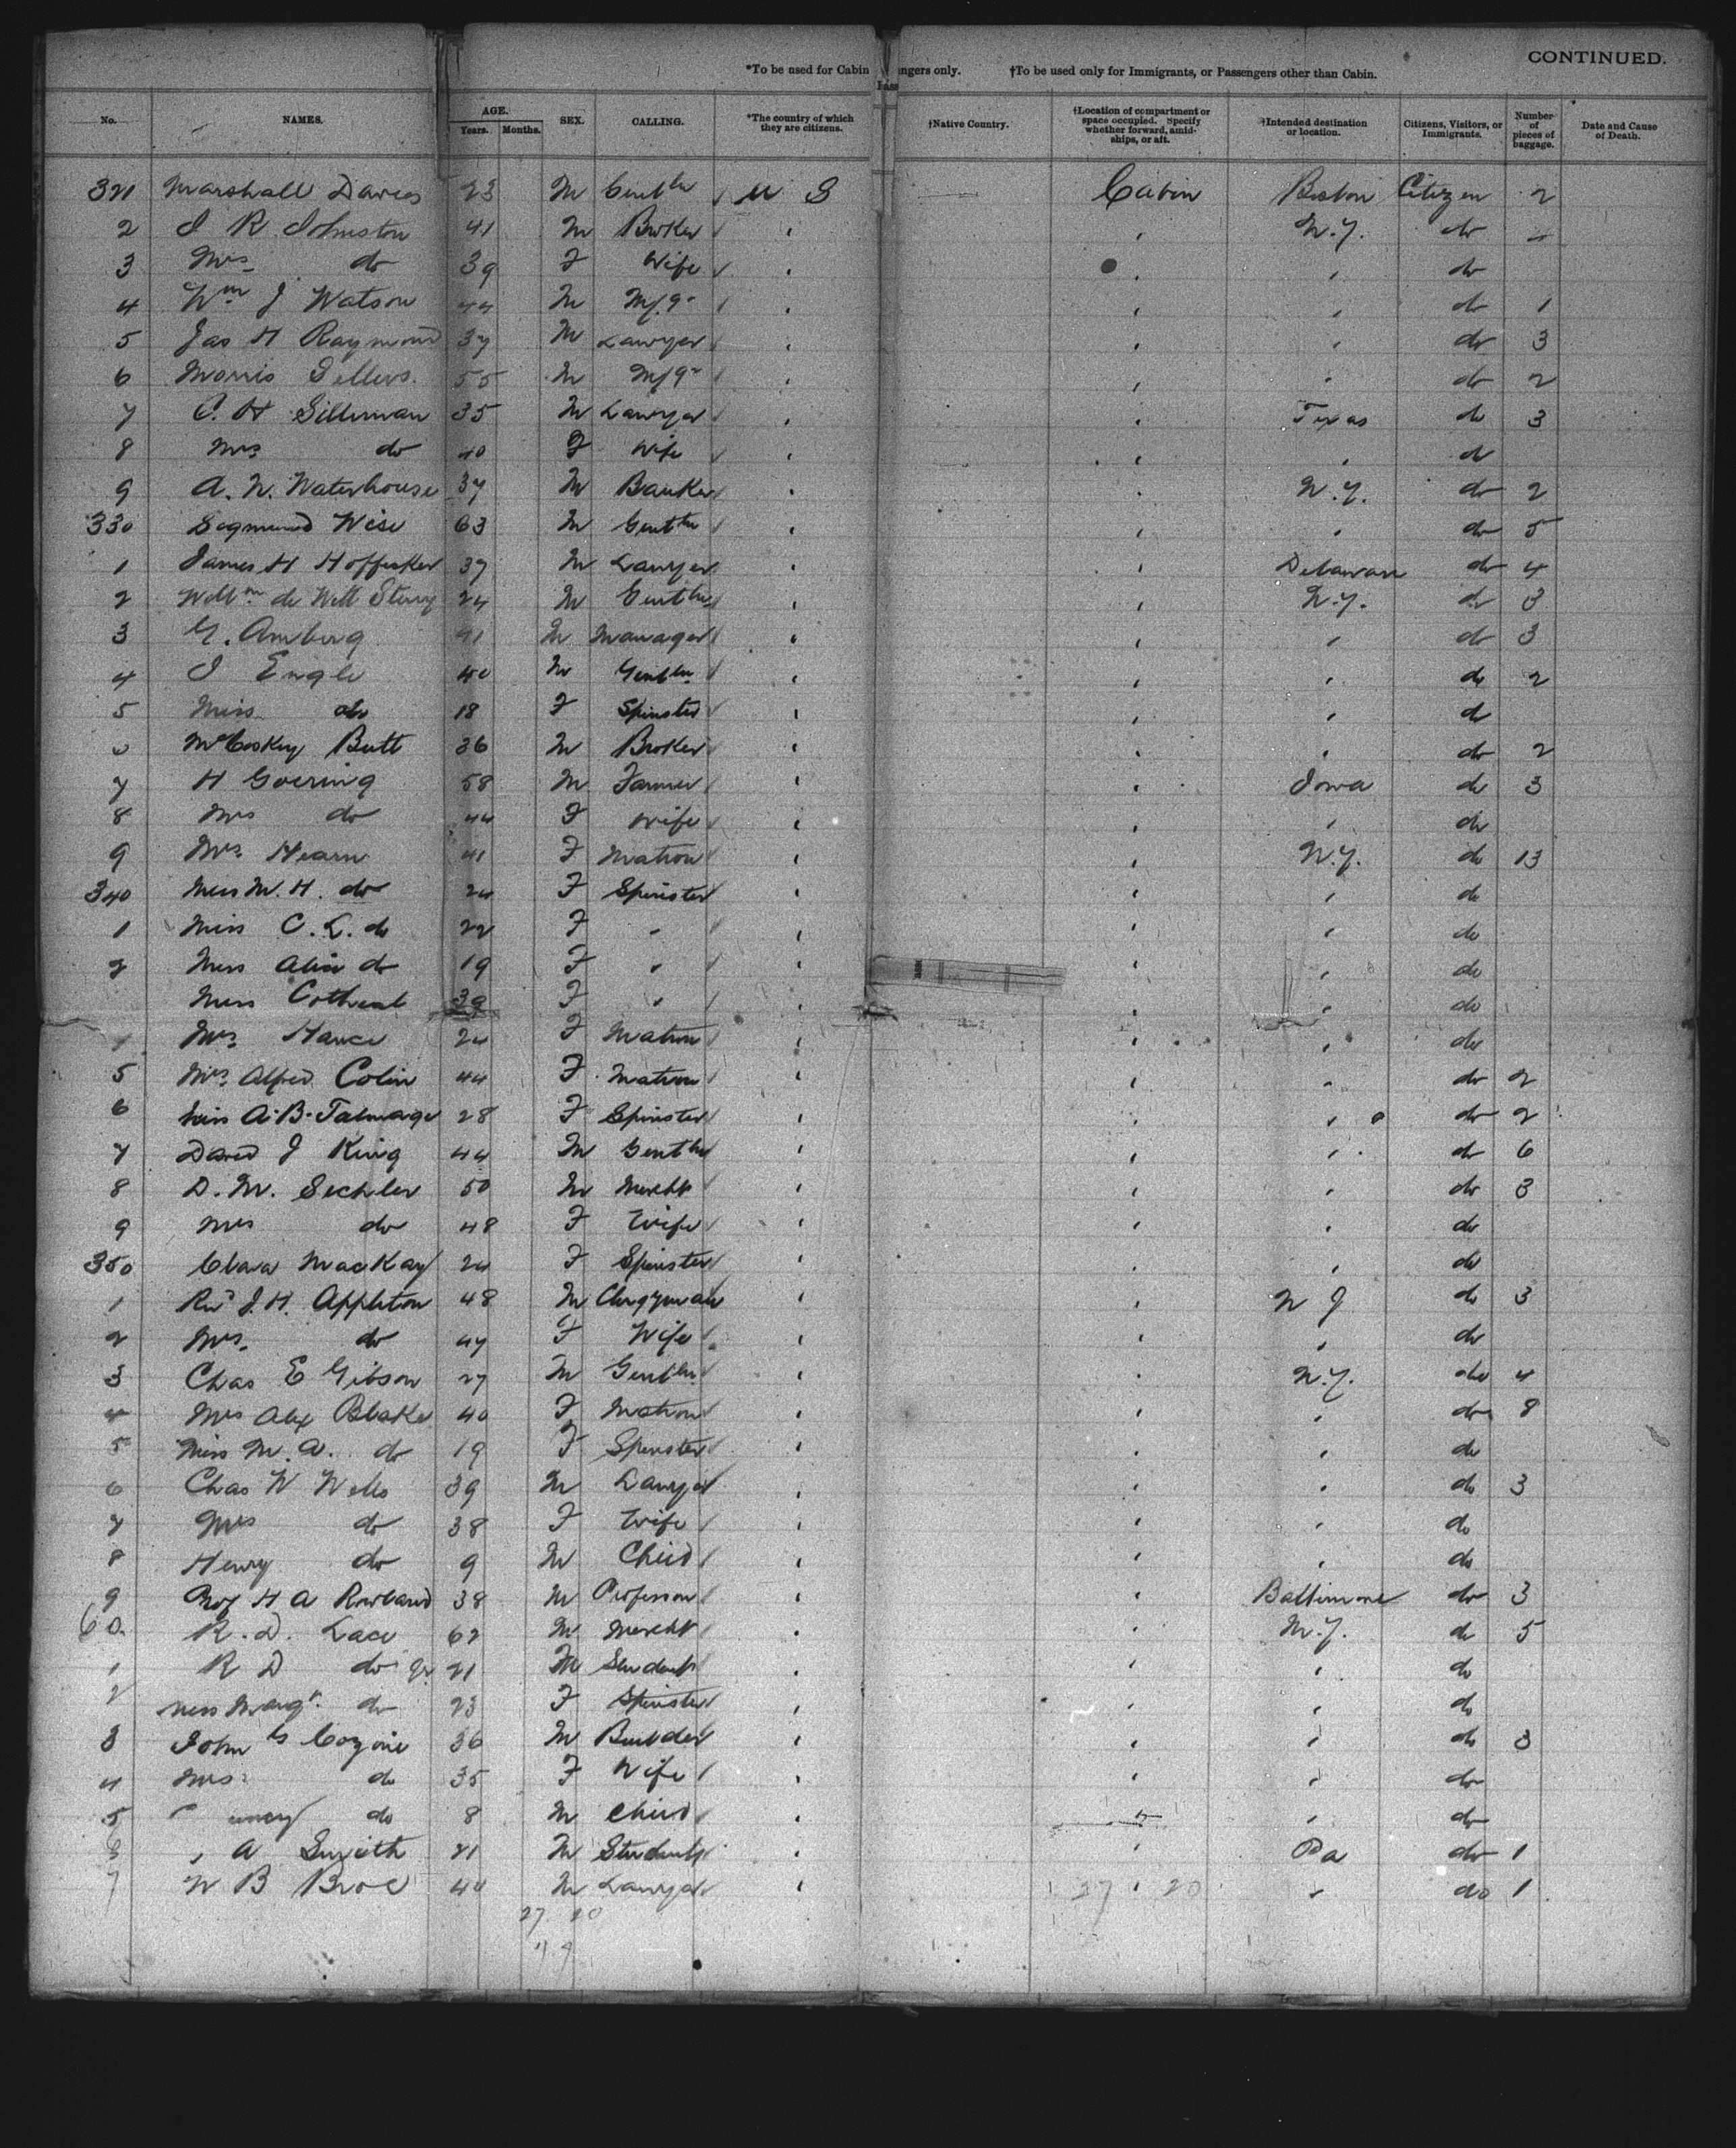 CONTINUED.
*To be used for Cabin Passengers only. †To be used only for Immigrants, or Passengers other than Cabin.
No. NAMES. AGE. Years. Months. SEX. CALLING. *The country of which they are citizens. †Native Country. †Location of compartment or space occupied. Specify whether forward, amidships, or aft. †Intended destination or location. Citizens, Visitors, or Immigrants. Number of pieces of baggage. Date and Cause of Death.
321 Marshall Davies 23 M Gentln U S Cabin Boston Citizen 2
2 J R Johnston 41 M Broker " " N.Y. do 4
3 Mrs do 39 F Wife " " " do
4 Wm J Watson 44 M Mfgr " " " do 1
5 Jas H Raymond 37 M Lawyer " " " do 3
6 Morris Sellers 55 M Mfgr " " " do 2
7 C. H Silliman 35 M Lawyer " " Texas do 3
8 Mrs do 40 F Wife " " " do
9 A. N. Waterhouse 37 M Banker " " N.Y. do 2
330 Sogmund Wise 63 M Gentln " " " do 5
1 James H Hoffecker 37 M Lawyer " " Delaware do 4
2 Willm de Witt Story 24 M Gentln " " N.Y. do 3
3 G. Amberg 41 M Manager " " " do 3
4 J Engle 40 M Gentln " " " do 2
5 Miss do 18 F Spinster " " " do
McCoskry Butt 36 M Broker " " " do 2
7 H Goering 58 M Farmer " " Iowa do 3
8 Mrs do 44 F Wife " " " do
9 Mrs Hearn 41 F Matron " " N.Y. do 13
340 Miss M. H. do 24 F Spinster " " " do
1 Miss C. L. do 22 F " " " " do
2 Miss Alice do 19 F " " " " do
Miss Cotheal 39 F " " " " do
Mrs Hance 24 F Matron " " " do
5 Mrs Alfred Colin 44 F Matron " " " do 2
6 Miss A. B. Talmage 28 F Spinster " " " do 2
7 David J King 44 M Gentln " " " do 6
8 D. M. Sechler 50 M Mercht " " " do 3
9 Mrs do 48 F Wife " " " do
350 Clara MacKay 24 F Spinster " " " do
1 Revd J. H. Appleton 48 M Clergyman " " N J do 3
2 Mrs. do 47 F Wife " " " do
3 Chas E Gibson 27 M Gentln " " N.Y. do 4
4 Mrs Alex Blake 40 F Matron " " " do 8
5 Miss M. A. do 19 F Spinster " " " do
6 Chas W Wells 39 M Lawyer " " " do 3
7 Mrs do 38 F Wife " " " do
8 Henry do 9 M Child " " " do
9 Prof H A Rowland 38 M Professor " " Baltimore do 3
60. R. D. Lace 62 M Mercht " " N.Y. do 5
1 R D do Jr 21 M Student " " " do
2 Miss Margt. do 23 F Spinster " " " do
3 John G Cozine 36 M Builder " " " do 3
4 Mrs do 35 F Wife " " " do
5 do 8 M Child " " " do
A Smith 21 M Student " " Pa do 1
7 W B 44 M Lawyer " " " do 1
27 20 27 20